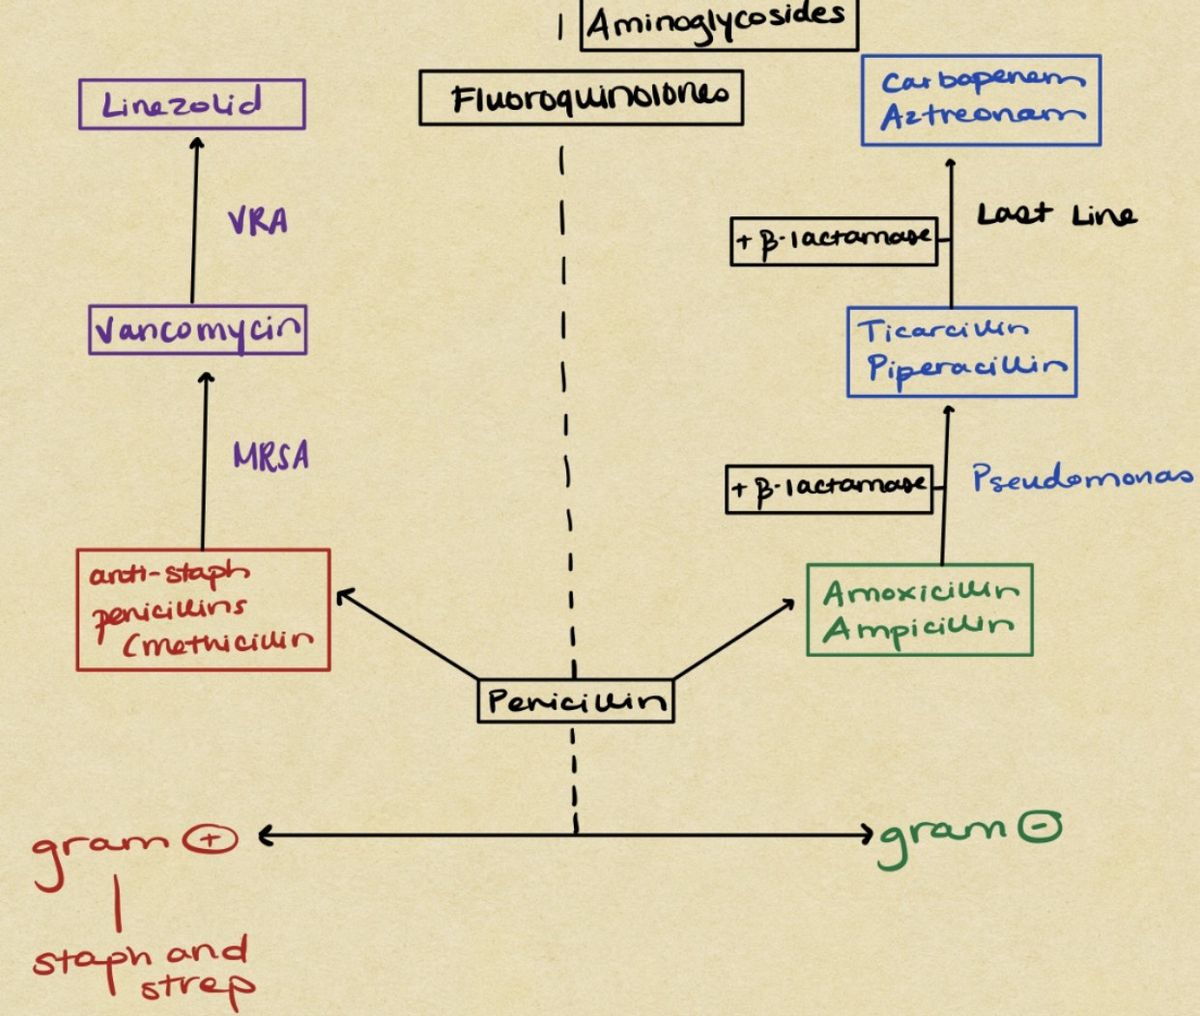 Aminoglycosides
Fluoroquinolones
Linezolid
Carbapenem
Aztreonam
VRA
Last Line
+ β-lactamase
Vancomycin
Ticarcillin
Piperacillin
MRSA
+ β-lactamase
Pseudomonas
anti-staph
penicillins
(methicillin
Amoxicillin
Ampicillin
Penicillin
gram +
gram -
staph and
strep